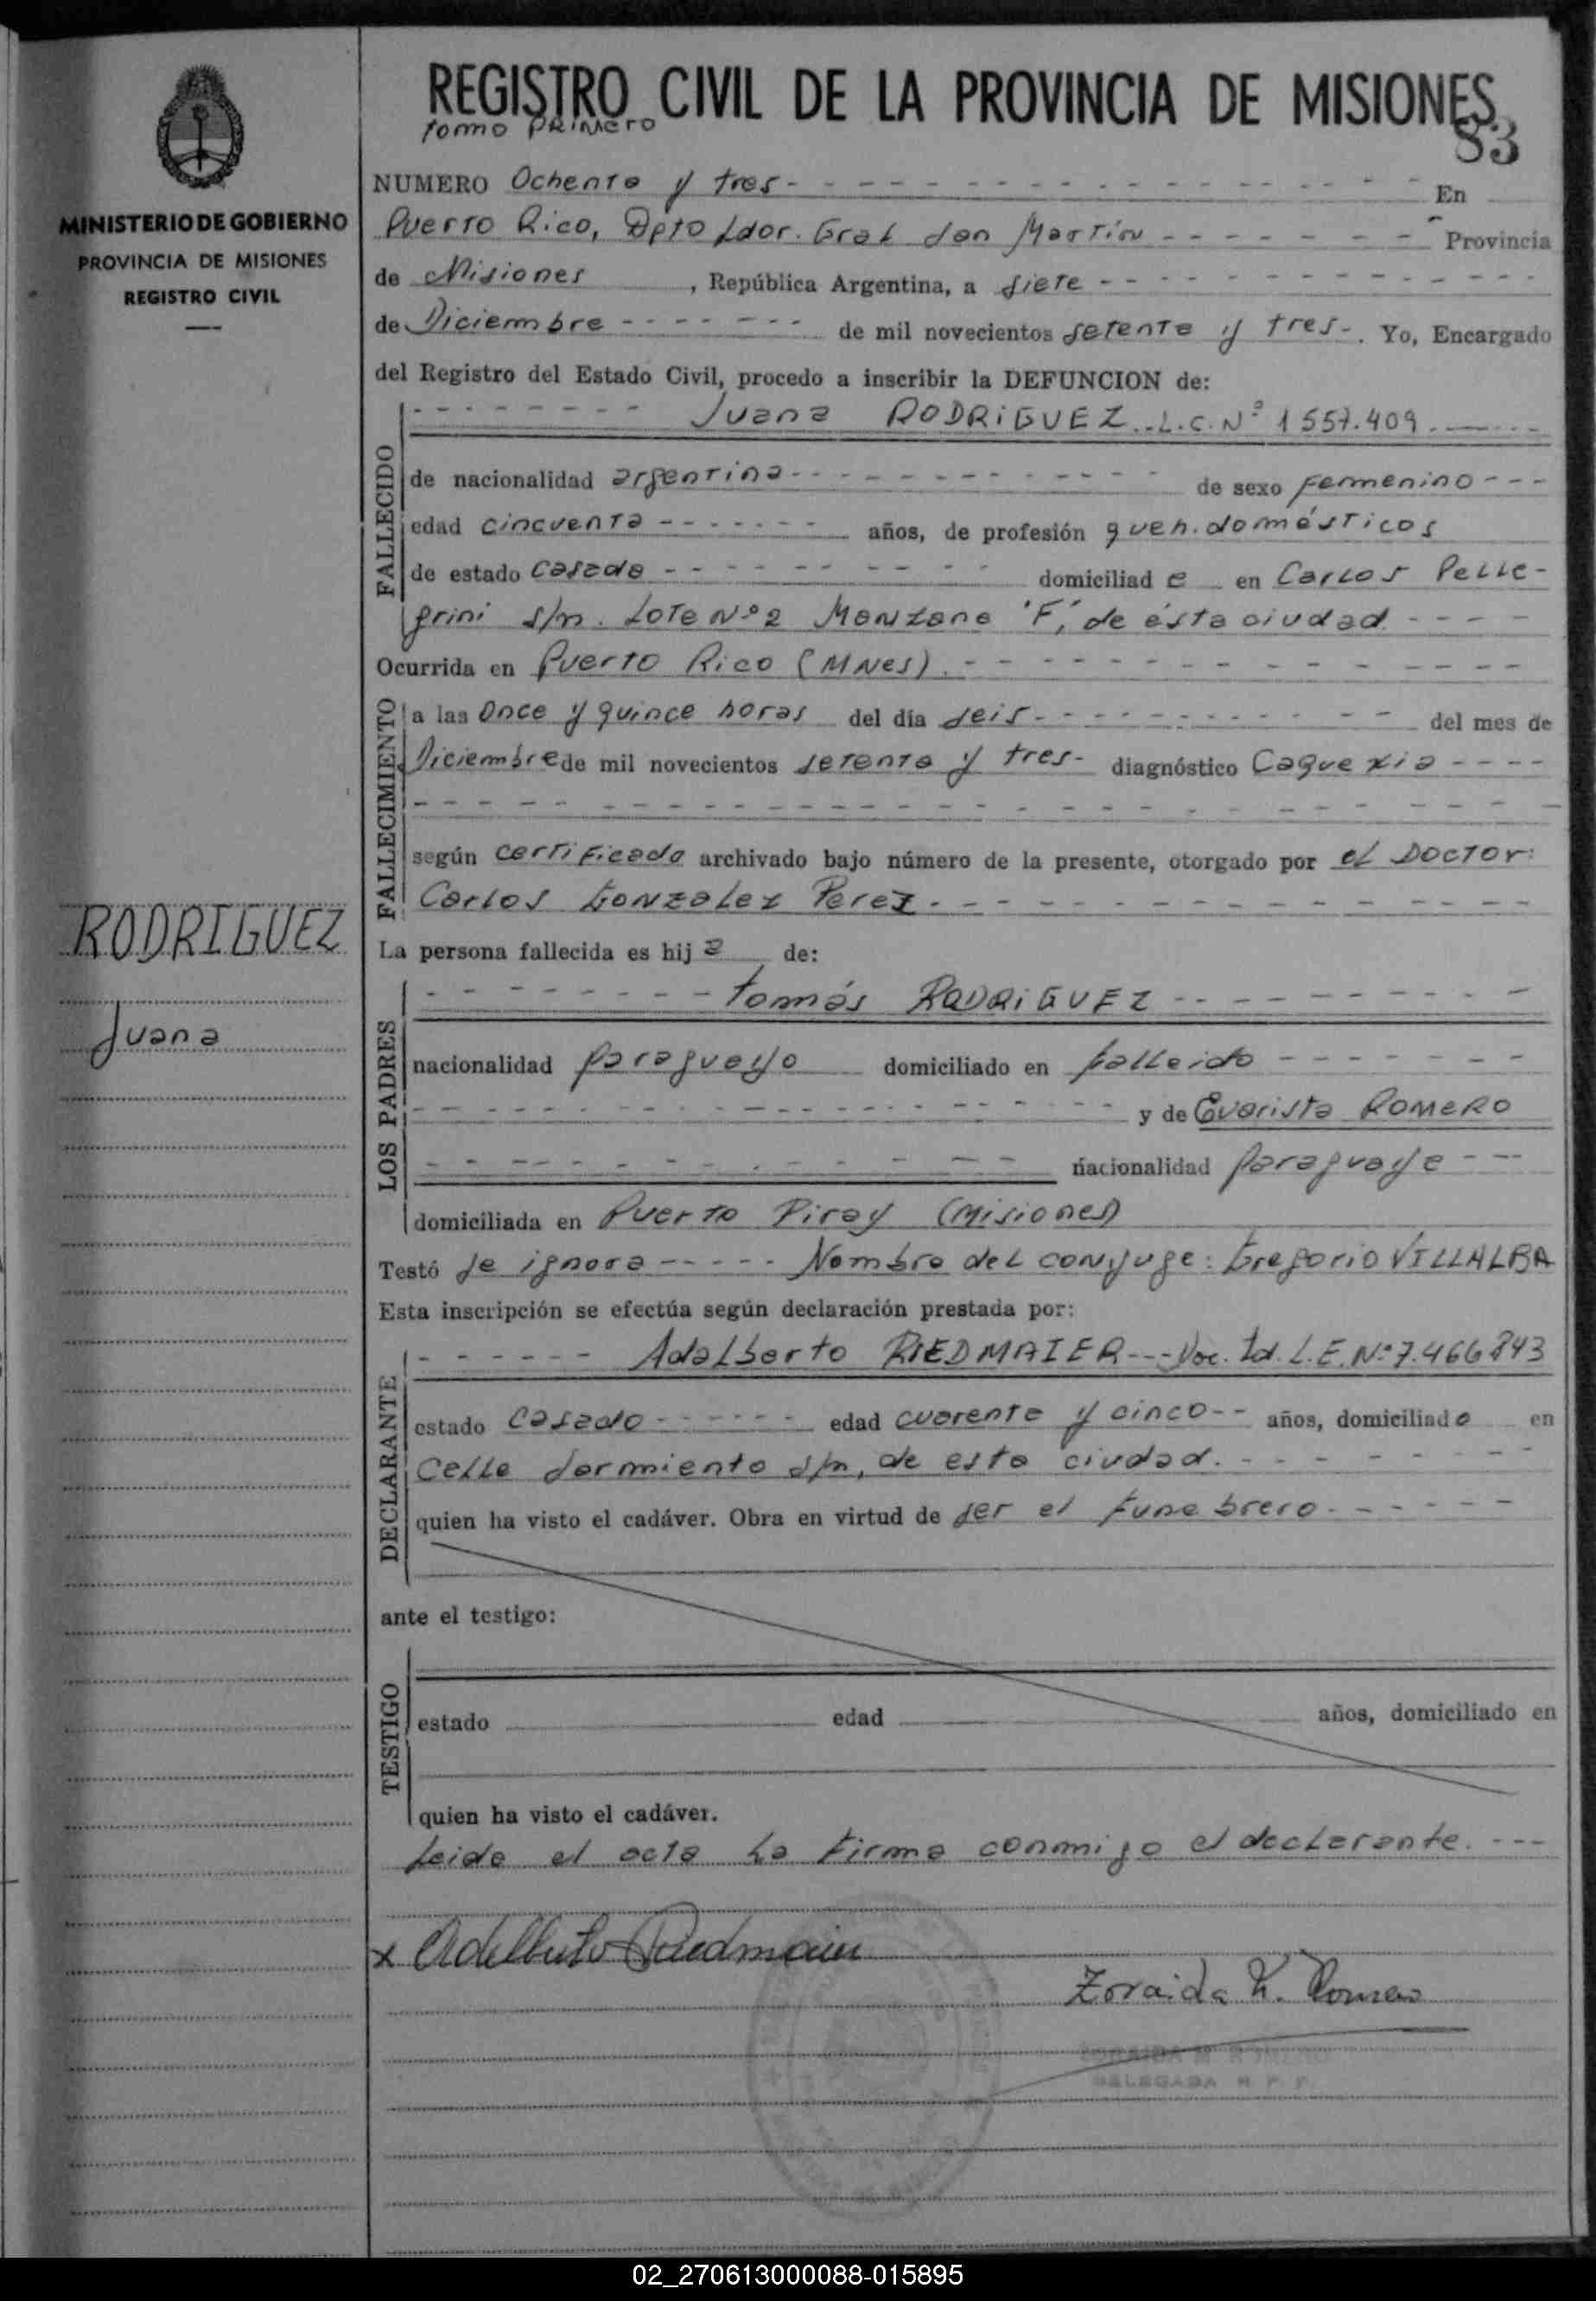 REGISTRO CIVIL DE LA PROVINCIA DE MISIONES
tomo PRIMERO
83
MINISTERIO DE GOBIERNO
PROVINCIA DE MISIONES
REGISTRO CIVIL
NUMERO Ochenta y tres En
Puerto Rico, Dpto Ldor. Gral San Martín Provincia
de Misiones, República Argentina, a siete
de Diciembre de mil novecientos setenta y tres. Yo, Encargado
del Registro del Estado Civil, procedo a inscribir la DEFUNCION de:
FALLECIDO
Juana RODRIGUEZ. L.C. Nº 1557.409
de nacionalidad argentina de sexo femenino
edad cincuenta años, de profesión queh. domésticos
de estado casada domiciliada en Carlos Pelle-
grini s/n. Lote Nº 2 Manzana "F", de ésta ciudad
Ocurrida en Puerto Rico (MNes).
FALLECIMIENTO
a las Once y quince horas del día seis del mes de
Diciembre de mil novecientos setenta y tres- diagnóstico Caquexia
según certificado archivado bajo número de la presente, otorgado por el DOCTOR:
Carlos Gonzalez Perez.
RODRIGUEZ
Juana
La persona fallecida es hija de:
LOS PADRES
Tomás RODRIGUEZ
nacionalidad paraguayo domiciliado en falleido
y de Evarista ROMERO
nacionalidad paraguaya
domiciliada en Puerto Piray (Misiones)
Testó se ignora Nombre del conyuge: Gregorio VILLALBA
Esta inscripción se efectúa según declaración prestada por:
DECLARANTE
Adalberto RIEDMAIER Doc. Id. L.E. Nº 7.466843
estado casado edad cuarenta y cinco años, domiciliado en
Calle Sarmiento s/n, de esta ciudad.
quien ha visto el cadáver. Obra en virtud de ser el funebrero
ante el testigo:
TESTIGO
estado edad años, domiciliado en
quien ha visto el cadáver.
Leida el acta la firma conmigo el declarante.
x Adelberto Riedmaier
Zoraida K. Romero
ZORAIDA ROMERO
DELEGADA
02_270613000088-015895